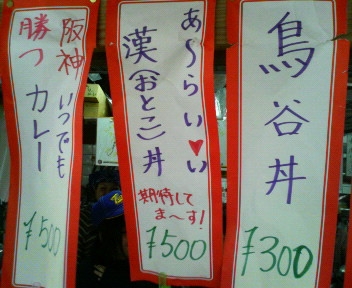 鳥谷丼
¥300
あ〜らい♥い
漢(おとこ)丼
期待して
ま〜す!
¥500
阪神いつでも
勝つカレー
¥500